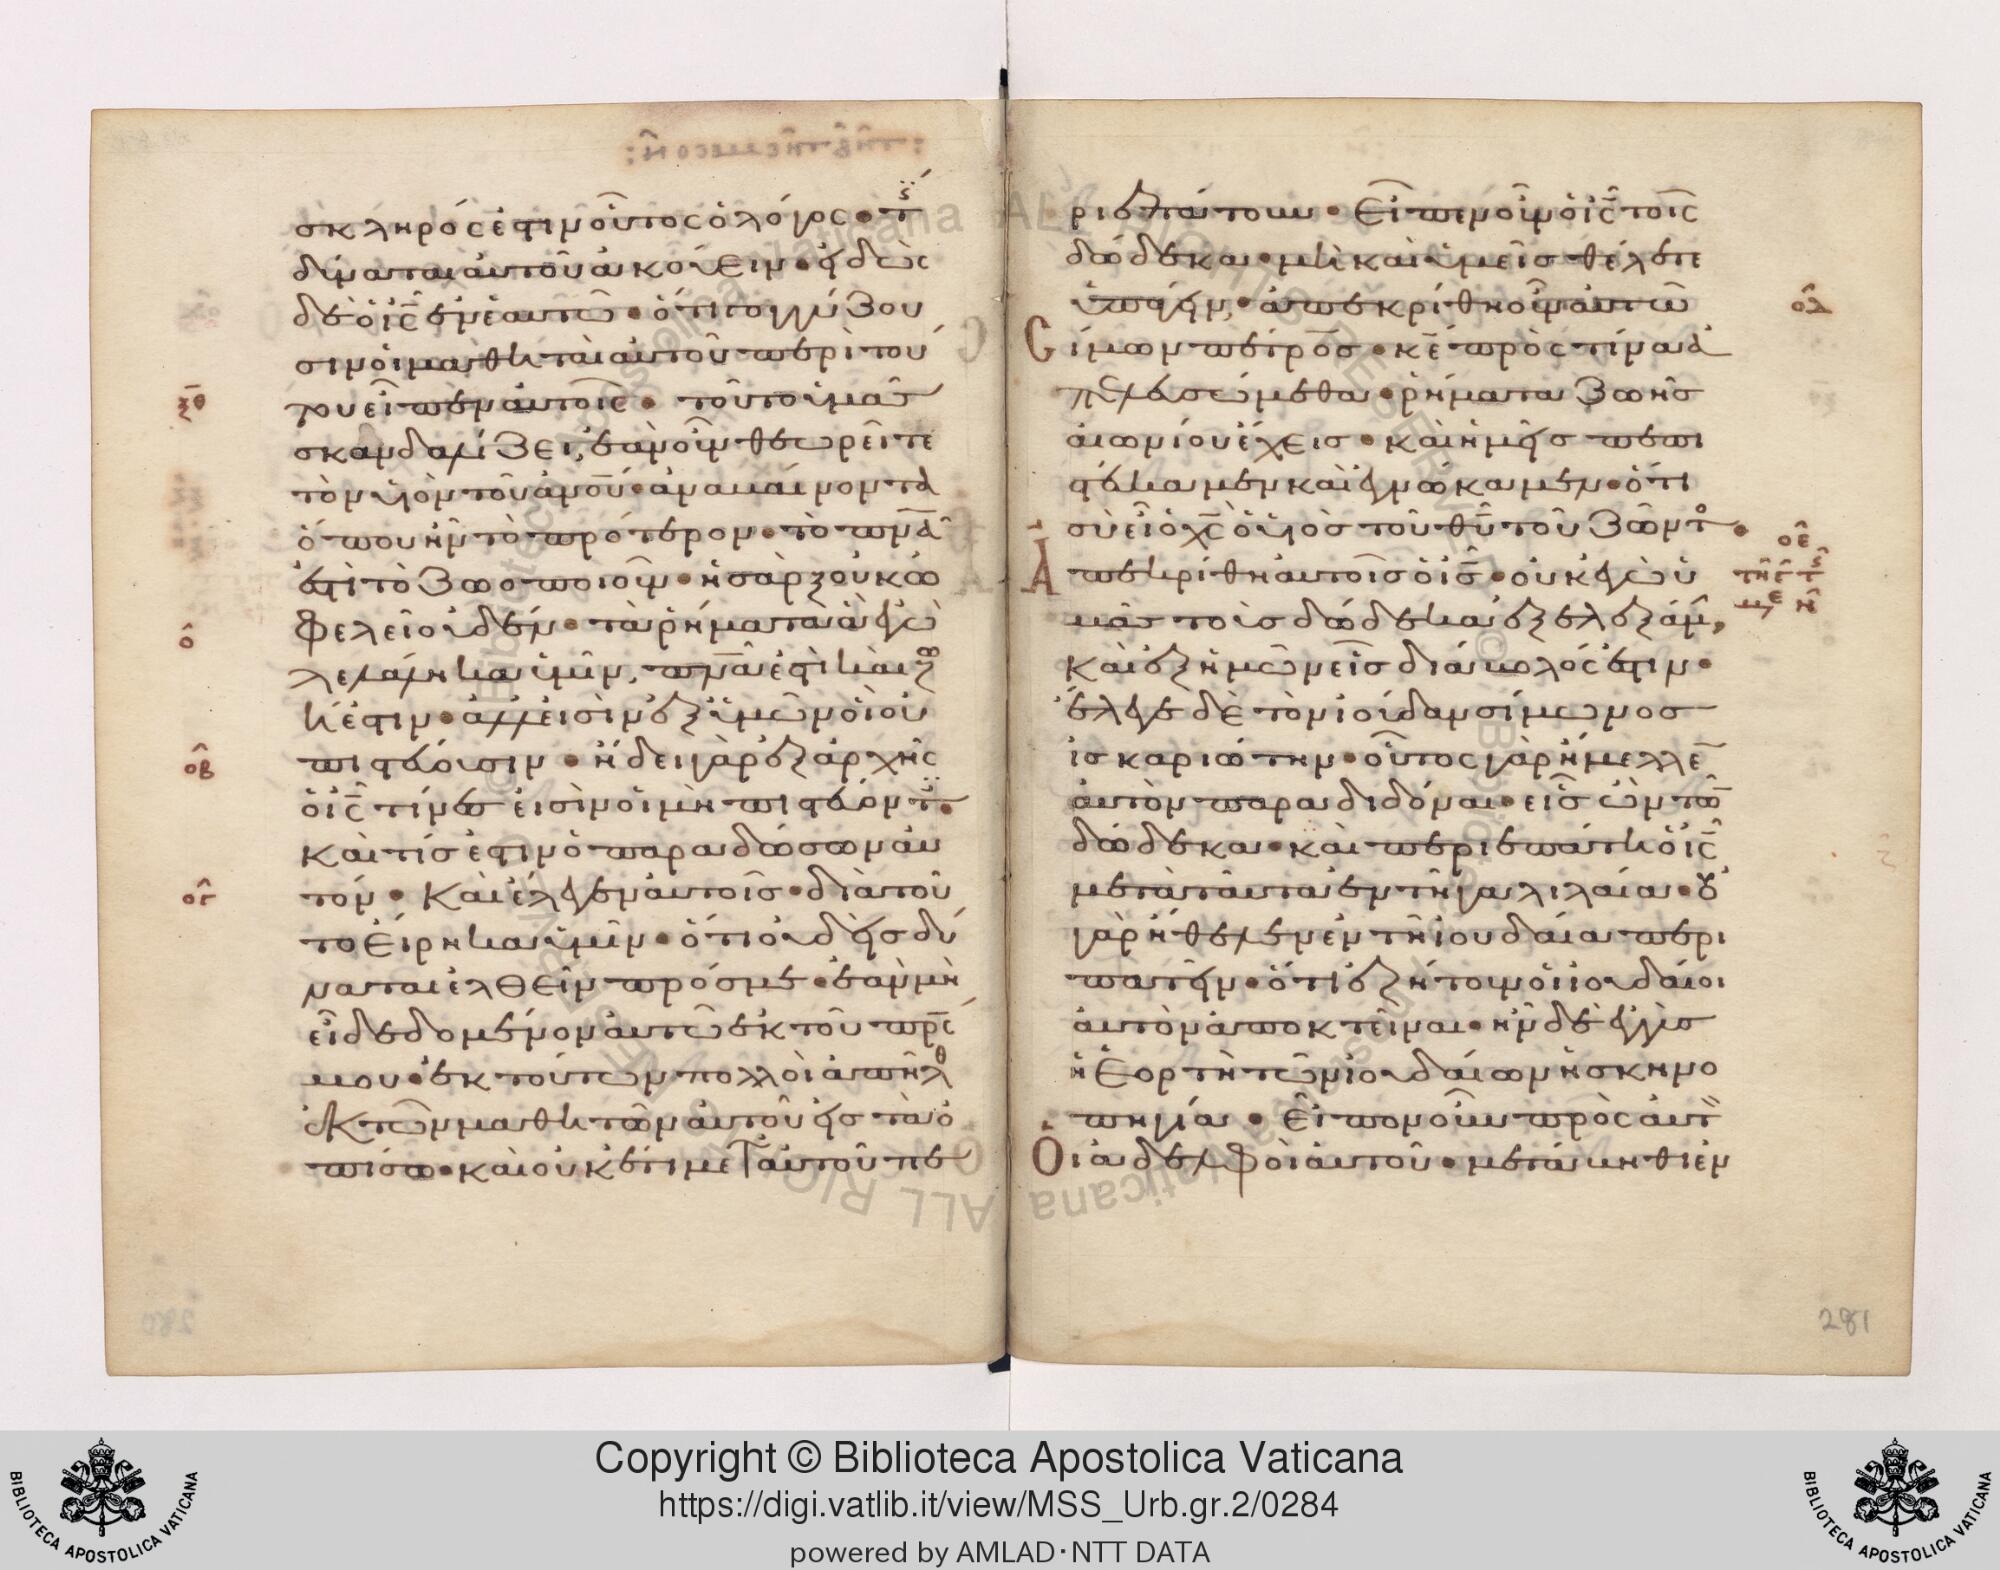 σκληρός ἐστιν οὗτος ὁ λόγος· τίς
δύναται αὐτοῦ ἀκούειν· εἰδὼς
δὲ ὁ ις ἐν ἑαυτῶ· ὅτι γογγύζου
σιν οἱ μαθηταὶ αὐτοῦ περὶ τού
του εἶπεν αὐτοῖς· τοῦτο ὑμᾶς
σκανδαλίζει, ἐὰν οὖν θεωρεῖτε
τὸν υἱὸν τοῦ ανου ἀναβαίνοντα
ὅπου ἦν τὸ πρότερον· τὸ πνα
ἐστὶ τὸ ζωοποιοῦν· ἡ σὰρξ οὐκ ὠ
φελεῖ οὐδέν· τὰ ῥήματα ἃ ἐγὼ
λελάληκα ὑμῖν, πνα ἐστὶ καὶ ζω
ή ἐστιν· ἀλλ' εἰσὶν ἐξ ὑμῶν οἳ οὐ
πιστεύουσιν· ἤδει γὰρ ἐξ ἀρχῆς
ὁ ις τίνες εἰσὶν οἱ μὴ πιστεύοντες·
καὶ τίς ἐστιν ὁ παραδώσων αὐ
τόν· Καὶ ἔλεγεν αὐτοῖς· διὰ τοῦ
το εἴρηκα ὑμῖν· ὅτι οὐδεὶς δύ
ναται ἐλθεῖν πρός με· ἐὰν μὴ
εἶ δεδομένον αὐτῶ ἐκ τοῦ πρς
μου· ἐκ τούτων πολλοὶ ἀπῆλθ
ἐκ τῶν μαθητῶν αὐτοῦ εἰς τὰ ὀ
πίσω· καὶ οὐκ έτι μετ αὐτοῦ πε
ξθ
ο
οβ
ογ
ριεπάτουν· Εἶπεν οὖν ὁ ις τοῖς
δώδεκα· μὴ καὶ ὑμεῖς θέλετε
ὑπάγειν· ἀπεκρίθη οὖν αὐτῶ
Σίμων πέτρος· κε πρὸς τίνα ἀ
πελευσώμεθα· ῥήματα ζωῆς
αἰωνίου ἔχεις· καὶ ἡμεῖς πεπι
στεύκαμεν καὶ ἐγνώκαμεν· ὅτι
σὺ εἶ ὁ χς ὁ υἱὸς τοῦ θυ τοῦ ζῶντο·
Ἀπεκρίθη αὐτοῖς ὁ ις· οὐκ ἐγὼ ὑ
μᾶς τοὺς δώδεκα ἐξελεξάμην,
καὶ ἐξ ἡμῶν εἷς διάβολός ἐστιν·
ἔλεγε δὲ τὸν ἰούδαν σίμωνος
ἰσκαριώτην· οὗτος γὰρ ἤμελλε
αὐτὸν παραδιδόναι· εἷς ὢν τῶν
δώδεκα· καὶ περιεπάτει ὁ ις
μετὰ ταῦτα ἐν τῆ γαλιλαία· οὐ
γὰρ ἤθελεν ἐν τῆ ἰουδαία περι
πατεῖν· ὅτι ἐζήτουν οἱ ἰουδαίοι
αὐτὸν ἀποκτεῖναι· ἦν δὲ ἐγγὺς
ἡ ἑορτὴ τῶν ἰουδαίων ἡ σκηνο
πηγία· Εἶπον οὖν πρὸς αὐτ
Οἱ ἀδελφοὶ αὐτοῦ· μετάβηθι ἐν
οδ
οε
281
Copyright © Biblioteca Apostolica Vaticana
https://digi.vatlib.it/view/MSS_Urb.gr.2/0284
powered by AMLAD·NTT DATA
BIBLIOTECA APOSTOLICA VATICANA
BIBLIOTECA APOSTOLICA VATICANA